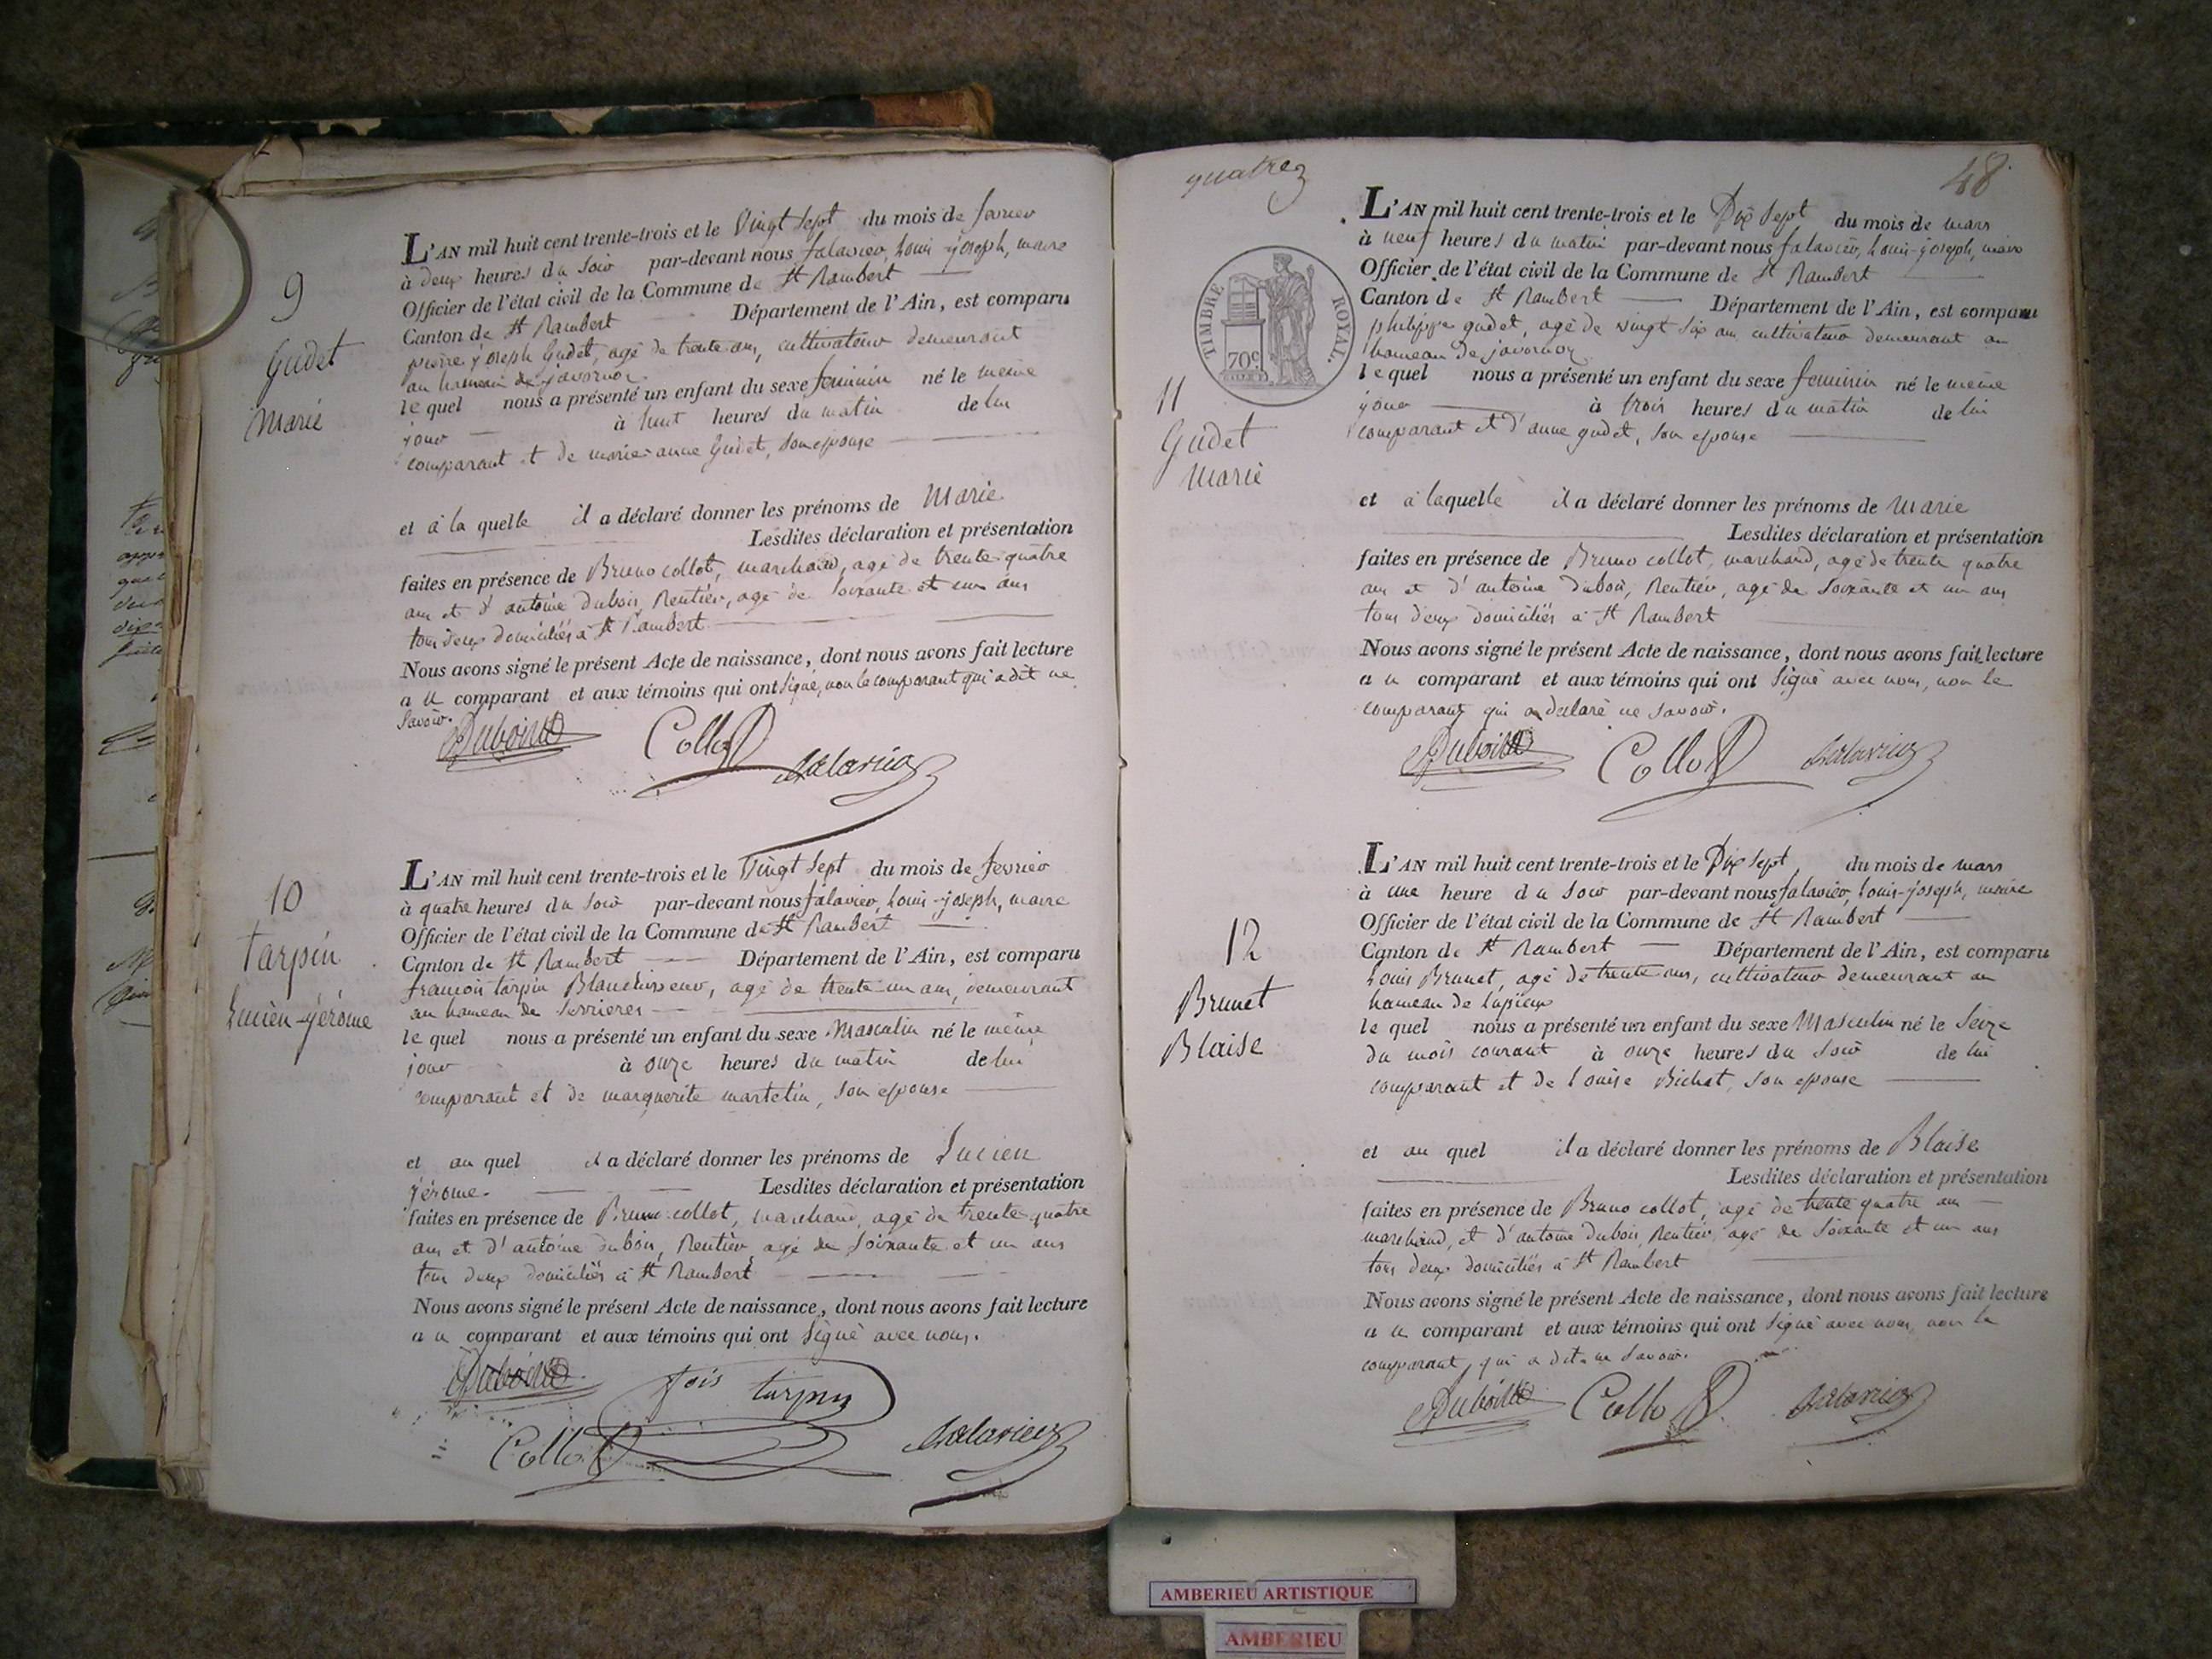 9
Gudet
Marie
L'AN mil huit cent trente-trois et le Vingt Sept du mois de fevrier
à deux heures du soir par-devant nous falavier, Louis-joseph, maire
Officier de l'état civil de la Commune de St Rambert
Canton de St Rambert Département de l'Ain, est comparu
pierre joseph Gudet, agé de trente ans, cultivateur demeurant
au hameau de javornoz
le quel nous a présenté un enfant du sexe feminin né le meme
jour à huit heures du matin de lui
comparant et de marie-anne Gudet, son epouse
et à la quelle il a déclaré donner les prénoms de Marie
Lesdites déclaration et présentation
faites en présence de Bruno collot, marchand, agé de trente quatre
ans et d'antoine dubois, Rentier, agé de soixante et un ans
tous deux domiciliés à St Rambert
Nous avons signé le présent Acte de naissance, dont nous avons fait lecture
au comparant et aux témoins qui ont signé, non le comparant qui a dit ne
savoir.
Dubois Collot falavier
10
tarpin
Lucien-jérôme
L'AN mil huit cent trente-trois et le Vingt Sept du mois de fevrier
à quatre heures du soir par-devant nous falavier, Louis-joseph, maire
Officier de l'état civil de la Commune de St Rambert
Canton de St Rambert Département de l'Ain, est comparu
francois tarpin Blanchisseur, agé de trente un ans, demeurant
au hameau de Serrieres
le quel nous a présenté un enfant du sexe Masculin né le même
jour à onze heures du matin de lui
comparant et de marguerite martelin, son epouse
et au quel il a déclaré donner les prénoms de Lucien
jérome. Lesdites déclaration et présentation
faites en présence de Bruno collot, marchand, agé de trente quatre
ans et d'antoine dubois, Rentier, agé de soixante et un ans
tous deux domiciliés à St Rambert
Nous avons signé le présent Acte de naissance, dont nous avons fait lecture
au comparant et aux témoins qui ont signé avec nous.
Dubois fois tarpin
Collot falavier
quatre
48
TIMBRE ROYAL.
70c
11
Gudet
Marie
L'AN mil huit cent trente-trois et le Dix Sept du mois de mars
à neuf heures du matin par-devant nous falavier, Louis-joseph, maire
Officier de l'état civil de la Commune de St Rambert
Canton de St Rambert Département de l'Ain, est comparu
philippe gudet, agé de vingt six ans cultivateur demeurant au
hameau de javornoz
le quel nous a présenté un enfant du sexe feminin né le même
jour à trois heures du matin de lui
comparant et d'anne gudet, son epouse
et à laquelle il a déclaré donner les prénoms de Marie
Lesdites déclaration et présentation
faites en présence de Bruno collot, marchand, agé de trente quatre
ans et d'antoine dubois, Rentier, agé de soixante et un ans
tous deux domiciliés à St Rambert
Nous avons signé le présent Acte de naissance, dont nous avons fait lecture
au comparant et aux témoins qui ont signé avec nous, non le
comparant qui a declaré ne savoir.
Dubois Collot falavier
12
Brunet
Blaise
L'AN mil huit cent trente-trois et le Dix Sept du mois de mars
à une heure du soir par-devant nous falavier, Louis-joseph, maire
Officier de l'état civil de la Commune de St Rambert
Canton de St Rambert Département de l'Ain, est comparu
Louis Brunet, agé de trente ans, cultivateur demeurant au
hameau de lupieux
le quel nous a présenté un enfant du sexe Masculin né le seize
du mois courant à onze heures du soir de lui
comparant et de Louise Bichat, son epouse
et au quel il a déclaré donner les prénoms de Blaise
Lesdites déclaration et présentation
faites en présence de Bruno collot, agé de trente quatre ans
marchand, et d'antoine dubois, Rentier, agé de soixante et un ans
tous deux domiciliés à St Rambert
Nous avons signé le présent Acte de naissance, dont nous avons fait lecture
au comparant et aux témoins qui ont signé avec nous, non le
comparant, qui a dit ne savoir.
Dubois Collot falavier
AMBERIEU ARTISTIQUE
AMBERIEU